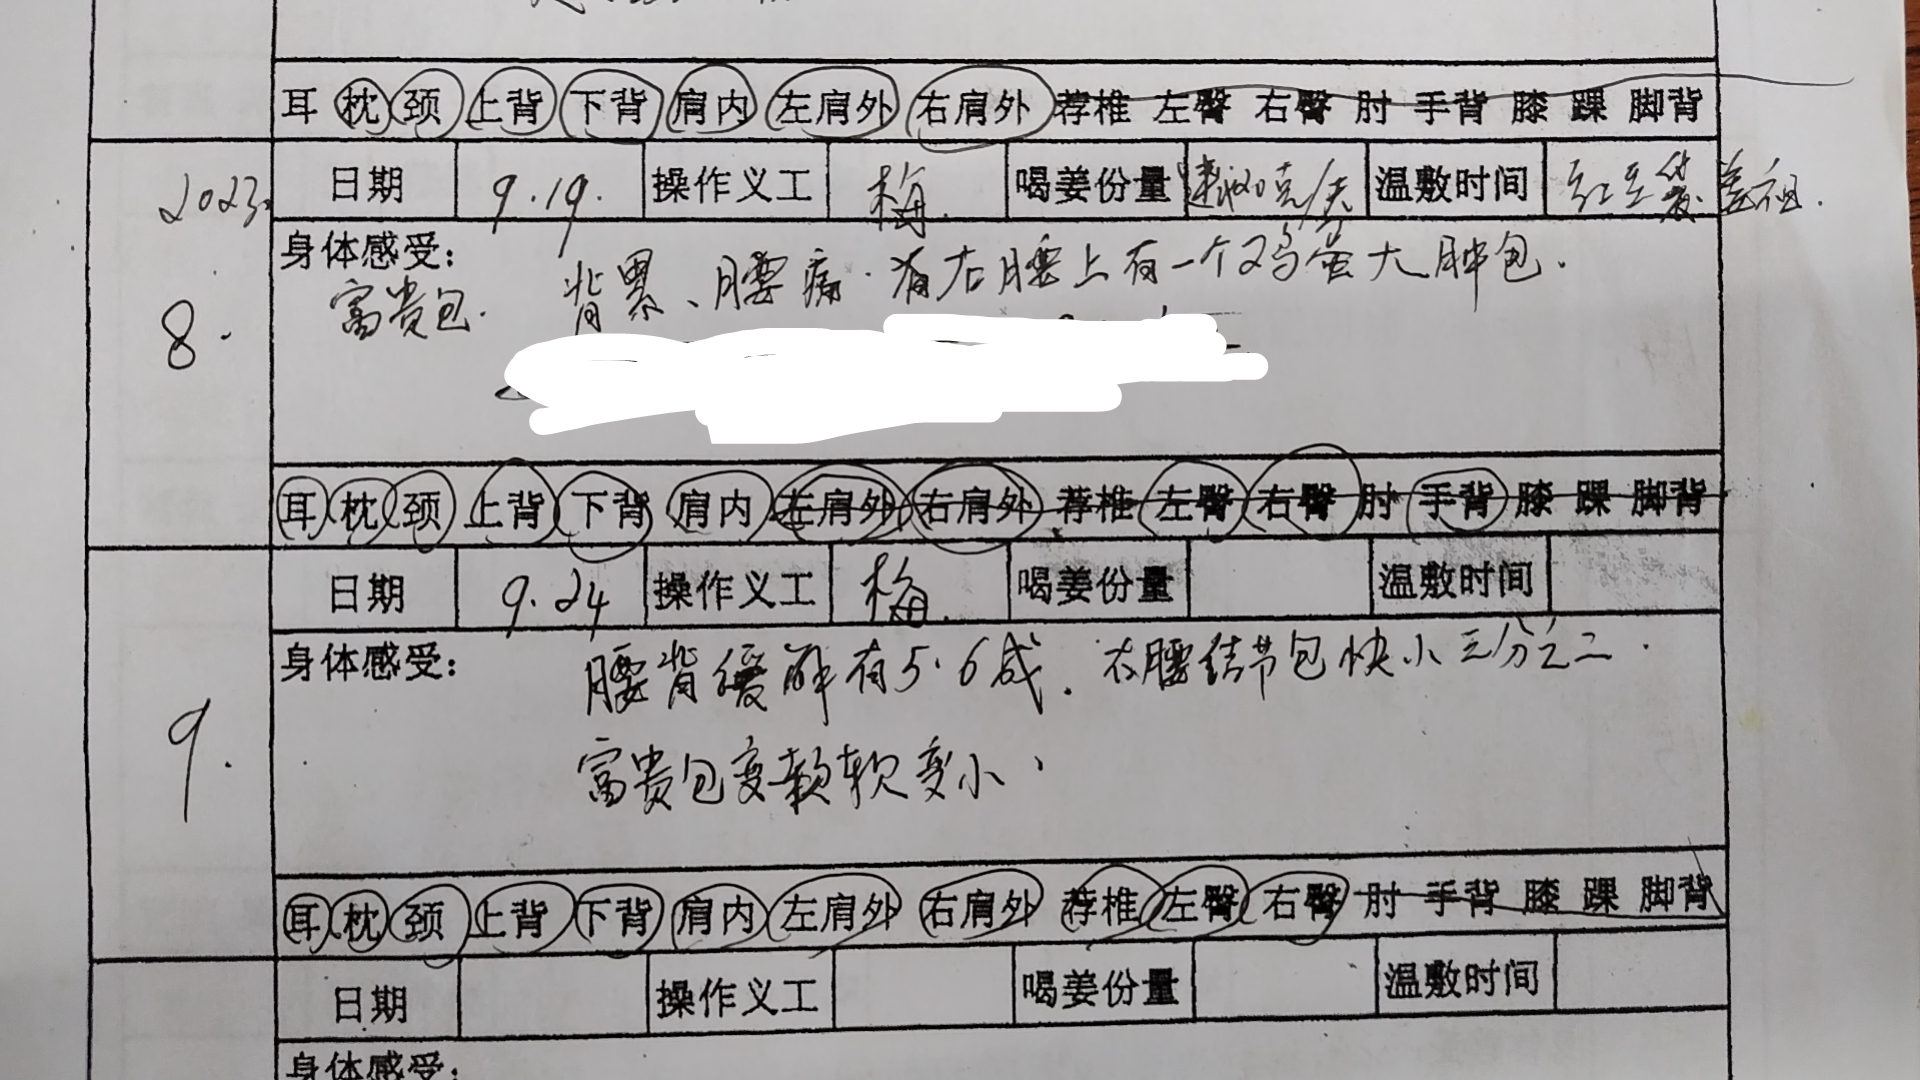 耳 枕 颈 上背 下背 肩内 左肩外 右肩外 荐椎 左臀 右臀 肘 手背 膝 踝 脚背
2023. 日期 9.19. 操作义工 梅. 喝姜份量 克/天 温敷时间 红豆袋.
身体感受: 背累、腰痛.有右腰上有一个鸡蛋大肿包.
富贵包.
8.
耳 枕 颈 上背 下背 肩内 左肩外 右肩外 荐椎 左臀 右臀 肘 手背 膝 踝 脚背
日期 9.24 操作义工 梅. 喝姜份量 温敷时间
身体感受: 腰背缓解有5.6成. 右腰结节包快小三分之二.
9.
富贵包变软变小、
耳 枕 颈 上背 下背 肩内 左肩外 右肩外 荐椎 左臀 右臀 肘 手背 膝 踝 脚背
日期 操作义工 喝姜份量 温敷时间
身体感受: